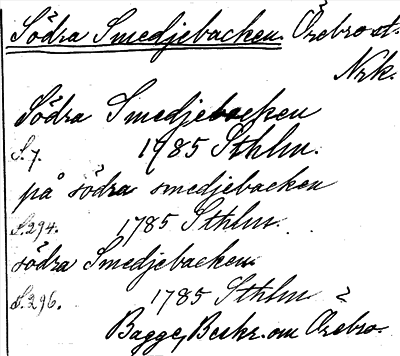 Södra Smedjebacken. Örebro st.
Nrk.
Södra Smedjebacken
S. 7. 1785 Sthlm.
på södra smedjebacken
S. 294. 1785 Sthlm.
södra Smedjebacken
S. 296. 1785 Sthlm
Bagge, Beskr. om Örebro.